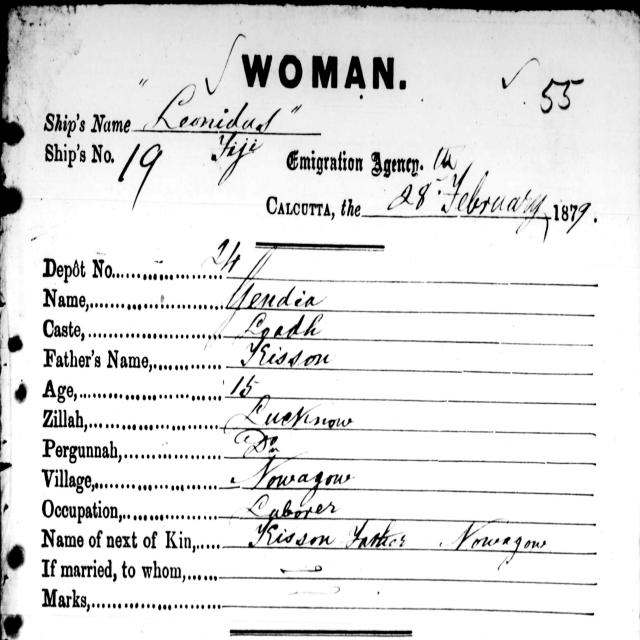 WOMAN.
55
Ship's Name "Leonidas"
Ship's No. 19 Fiji Emigration Agency.
CALCUTTA, the 28th February 1879.
Depôt No. 24
Name, Gendia
Caste, Loadh
Father's Name, Kisson
Age, 15
Zillah, Lucknow
Pergunnah, Do
Village, Nowagow
Occupation, Laborer
Name of next of Kin, Kisson Father Nowagow
If married, to whom, —
Marks, —